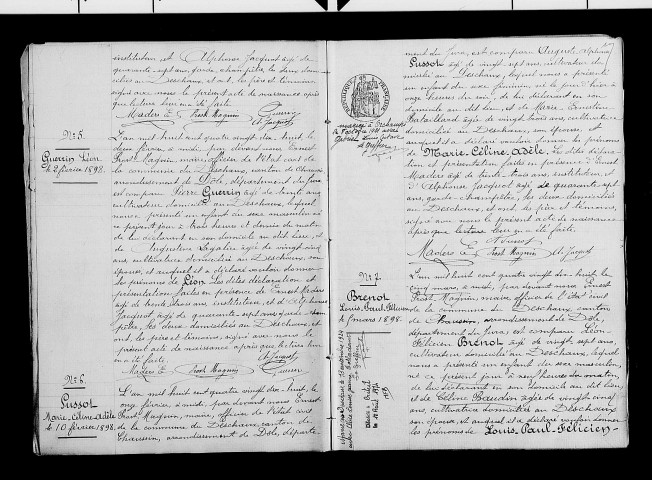 instituteur et Alphonse Jacquot agé de
quarante-sept ans, garde-champêtre, les deux domi-
ciliés au Deschaux, et ont, les père et témoins
signé avec nous le présent acte de naissance
après que lecture leur en a été faite.
Maders E. Prost Magnin Guerrin
A. Jacquot
N° 5.
Guerrin Léon
le 2 février 1898.
L'an mil huit cent quatre vingt dix-huit, le
deux février à midi, par devant nous Ernest
Prost-Magnin, maire, officier de l'état civil de
la commune du Deschaux, canton de Chaussin,
arrondissement de Dôle, département du Jura
est comparu Pierre Guerrin agé de trente ans,
cultivateur domicilié au Deschaux, lequel
nous a présenté un enfant du sexe masculin né
ce présent jour à trois heures et demie du matin
de lui déclarant en son domicile au dit lieu, et
de Augustine agée de vingt cinq
ans, cultivatrice domiciliée au Deschaux, son
épouse, et auquel il a déclaré vouloir donner
les prénoms de Léon. Les dites déclaration et
présentation faites en présence d'Ernest Maders
agé de trente-trois ans, instituteur, et d'Alphonse
Jacquot agé de quarante-sept ans, garde-cham-
pêtre, les deux domiciliés au Deschaux, et
ont, les père et témoins, signé avec nous le pré-
sent acte de naissance après que lecture leur
en a été faite.
A. Jacquot
Maders E. Prost Magnin Guerrin
N° 6.
Pussot
Marie-Céline-Adèle
le 10 février 1898.
L'an mil huit cent quatre vingt dix-huit, le
onze février, à midi, par devant nous Ernest
Prost-Magnin, maire, officier de l'état civil
de la commune du Deschaux, canton de
Chaussin, arrondissement de Dôle, départe-
ment du Jura, est comparu Auguste Alphonse
Pussot agé de vingt sept ans, cultivateur do-
micilié au Deschaux, lequel nous a présenté
un enfant du sexe féminin né le jour d'hier à
onze heures du soir, de lui déclarant en son
domicile au dit lieu, et de Marie Ernestine
Bataillard agée de vingt trois ans, cultivatrice
domiciliée au Deschaux, son épouse, et
auquel il a déclaré vouloir donner les prénoms
de Marie-Céline-Adèle. Les dites déclara-
tion et présentation faites en présence d'Ernest
Maders agé de trente-trois ans, instituteur, et
d'Alphonse Jacquot agé de quarante-sept
ans, garde-champêtre, les deux domiciliés
au Deschaux, et ont les père et témoins,
signé avec nous le présent acte de naissance
après que lecture leur en a été faite.
A. Pussot
Maders E. Prost Magnin A. Jacquot
REPUBLIQUE FRANÇAISE
N° 7.
Brenot
Louis-Paul-Félicien
le 5 mars 1898.
L'an mil huit cent quatre vingt dix-huit, le
cinq mars, à midi, par devant nous Ernest
Prost-Magnin, maire, officier de l'état civil
de la commune du Deschaux, canton
de Chaussin, arrondissement de Dôle,
département du Jura, est comparu Léon
Félicien Brenot agé de vingt sept ans,
cultivateur domicilié au Deschaux, lequel
nous a présenté un enfant du sexe masculin,
né ce présent jour à sept heures du matin
de lui déclarant en son domicile au dit lieu,
et de Céline Baudin agée de vingt cinq
ans, cultivatrice domiciliée au Deschaux
son épouse, et auquel il a déclaré vouloir donner
les prénoms de Louis-Paul-Félicien-